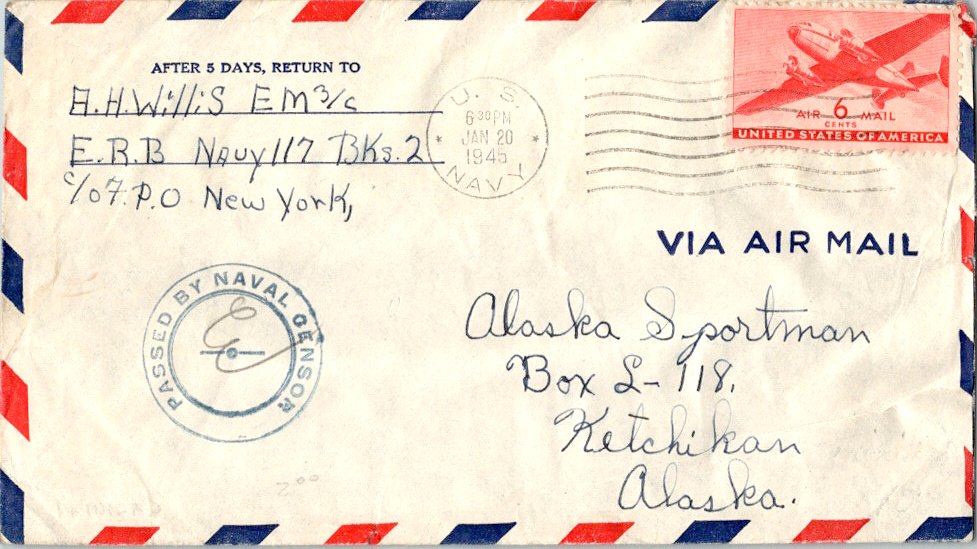 AFTER 5 DAYS, RETURN TO
A.H. Willis EM 3/c
E.R.B Navy 117 BKs. 2
c/o F.P.O New York,
U. S.
6 30 PM
JAN 20
1945
NAVY
AIR 6 MAIL
CENTS
UNITED STATES OF AMERICA
VIA AIR MAIL
PASSED BY NAVAL CENSOR
E
Alaska Sportman
Box L-118.
Ketchikan
Alaska.
2.00